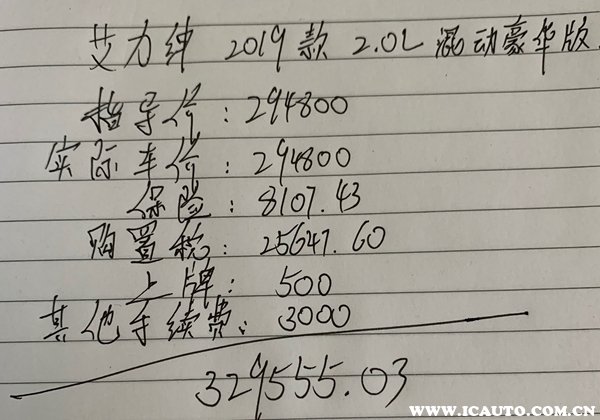 艾力绅 2019款 2.0L 混动豪华版
指导价：294800
实际车价：294800
保险：8107.43
购置税：25647.60
上牌：500
其他手续费：3000
329555.03
WWW.ICAUTO.COM.CN